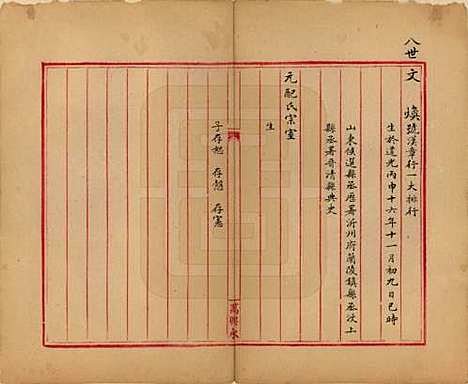 八世文　煥號漢章行一大排行
生於道光丙申十六年十一月初九日巳時
山東候選縣丞歷署沂州府蘭陵鎮縣丞汶上
縣丞署晉清縣典史
元配氏宗室
生
子存起　存懿　存憲
萬興永